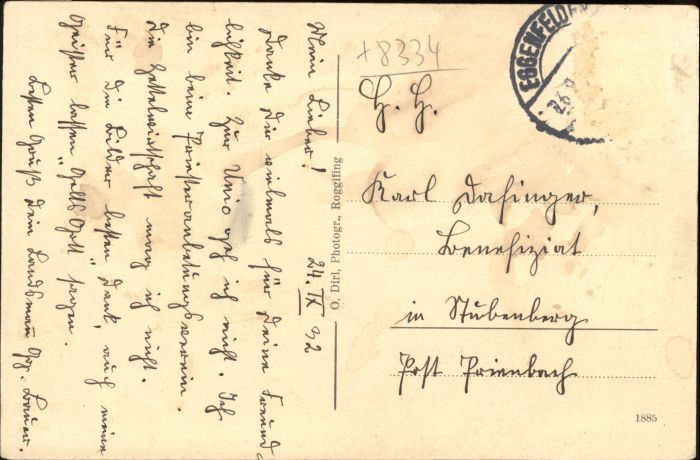 Mein Lieber! 24. IX 32
Danke dir vielmals für deine Freund-
lichkeit. Zur Unio geh ich nicht. Ich
bin beim Priesteranbetungsverein.
Die Zettelwirtschaft mag ich nicht.
Für die Bilder besten Dank, auch meine
Geister lassen "Gelts Gott" sagen.
Besten Gruß dein Landsmann Gg. Bauer.
O. Dirl, Photogr., Rogglfing
+8334
EGGENFELDEN
26.9
H. H.
Karl Dasinger,
Benefiziat
in Stubenberg
Post Prienbach
1885